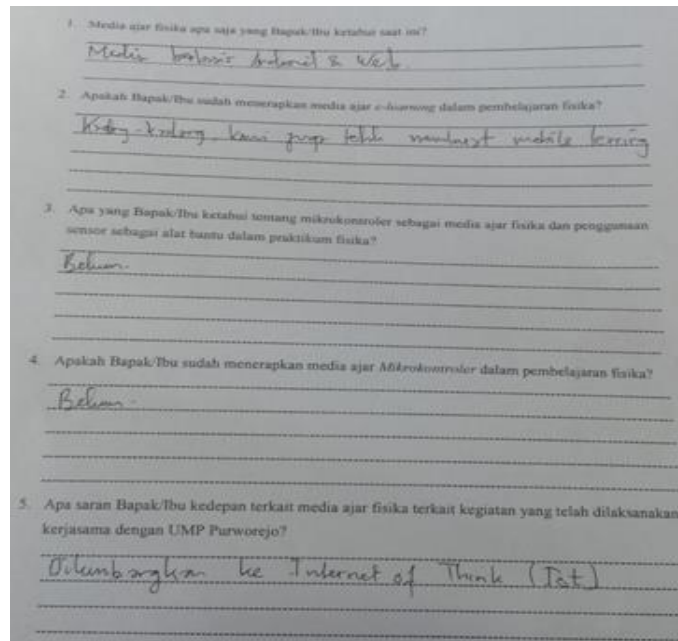 1. Media ajar fisika apa saja yang Bapak/Ibu ketahui saat ini?
Media berbasis Android & Web.
2. Apakah Bapak/Ibu sudah menerapkan media ajar e-learning dalam pembelajaran fisika?
Kadang-kadang, kami juga telah mobile
3. Apa yang Bapak/Ibu ketahui tentang mikrokontroler sebagai media ajar fisika dan penggunaan
sensor sebagai alat bantu dalam praktikum fisika?
Belum.
4. Apakah Bapak/Ibu sudah menerapkan media ajar Mikrokontroler dalam pembelajaran fisika?
Belum.
5. Apa saran Bapak/Ibu kedepan terkait media ajar fisika terkait kegiatan yang telah dilaksanakan
kerjasama dengan UMP Purworejo?
Dikembangkan ke Internet of Think (Iot)